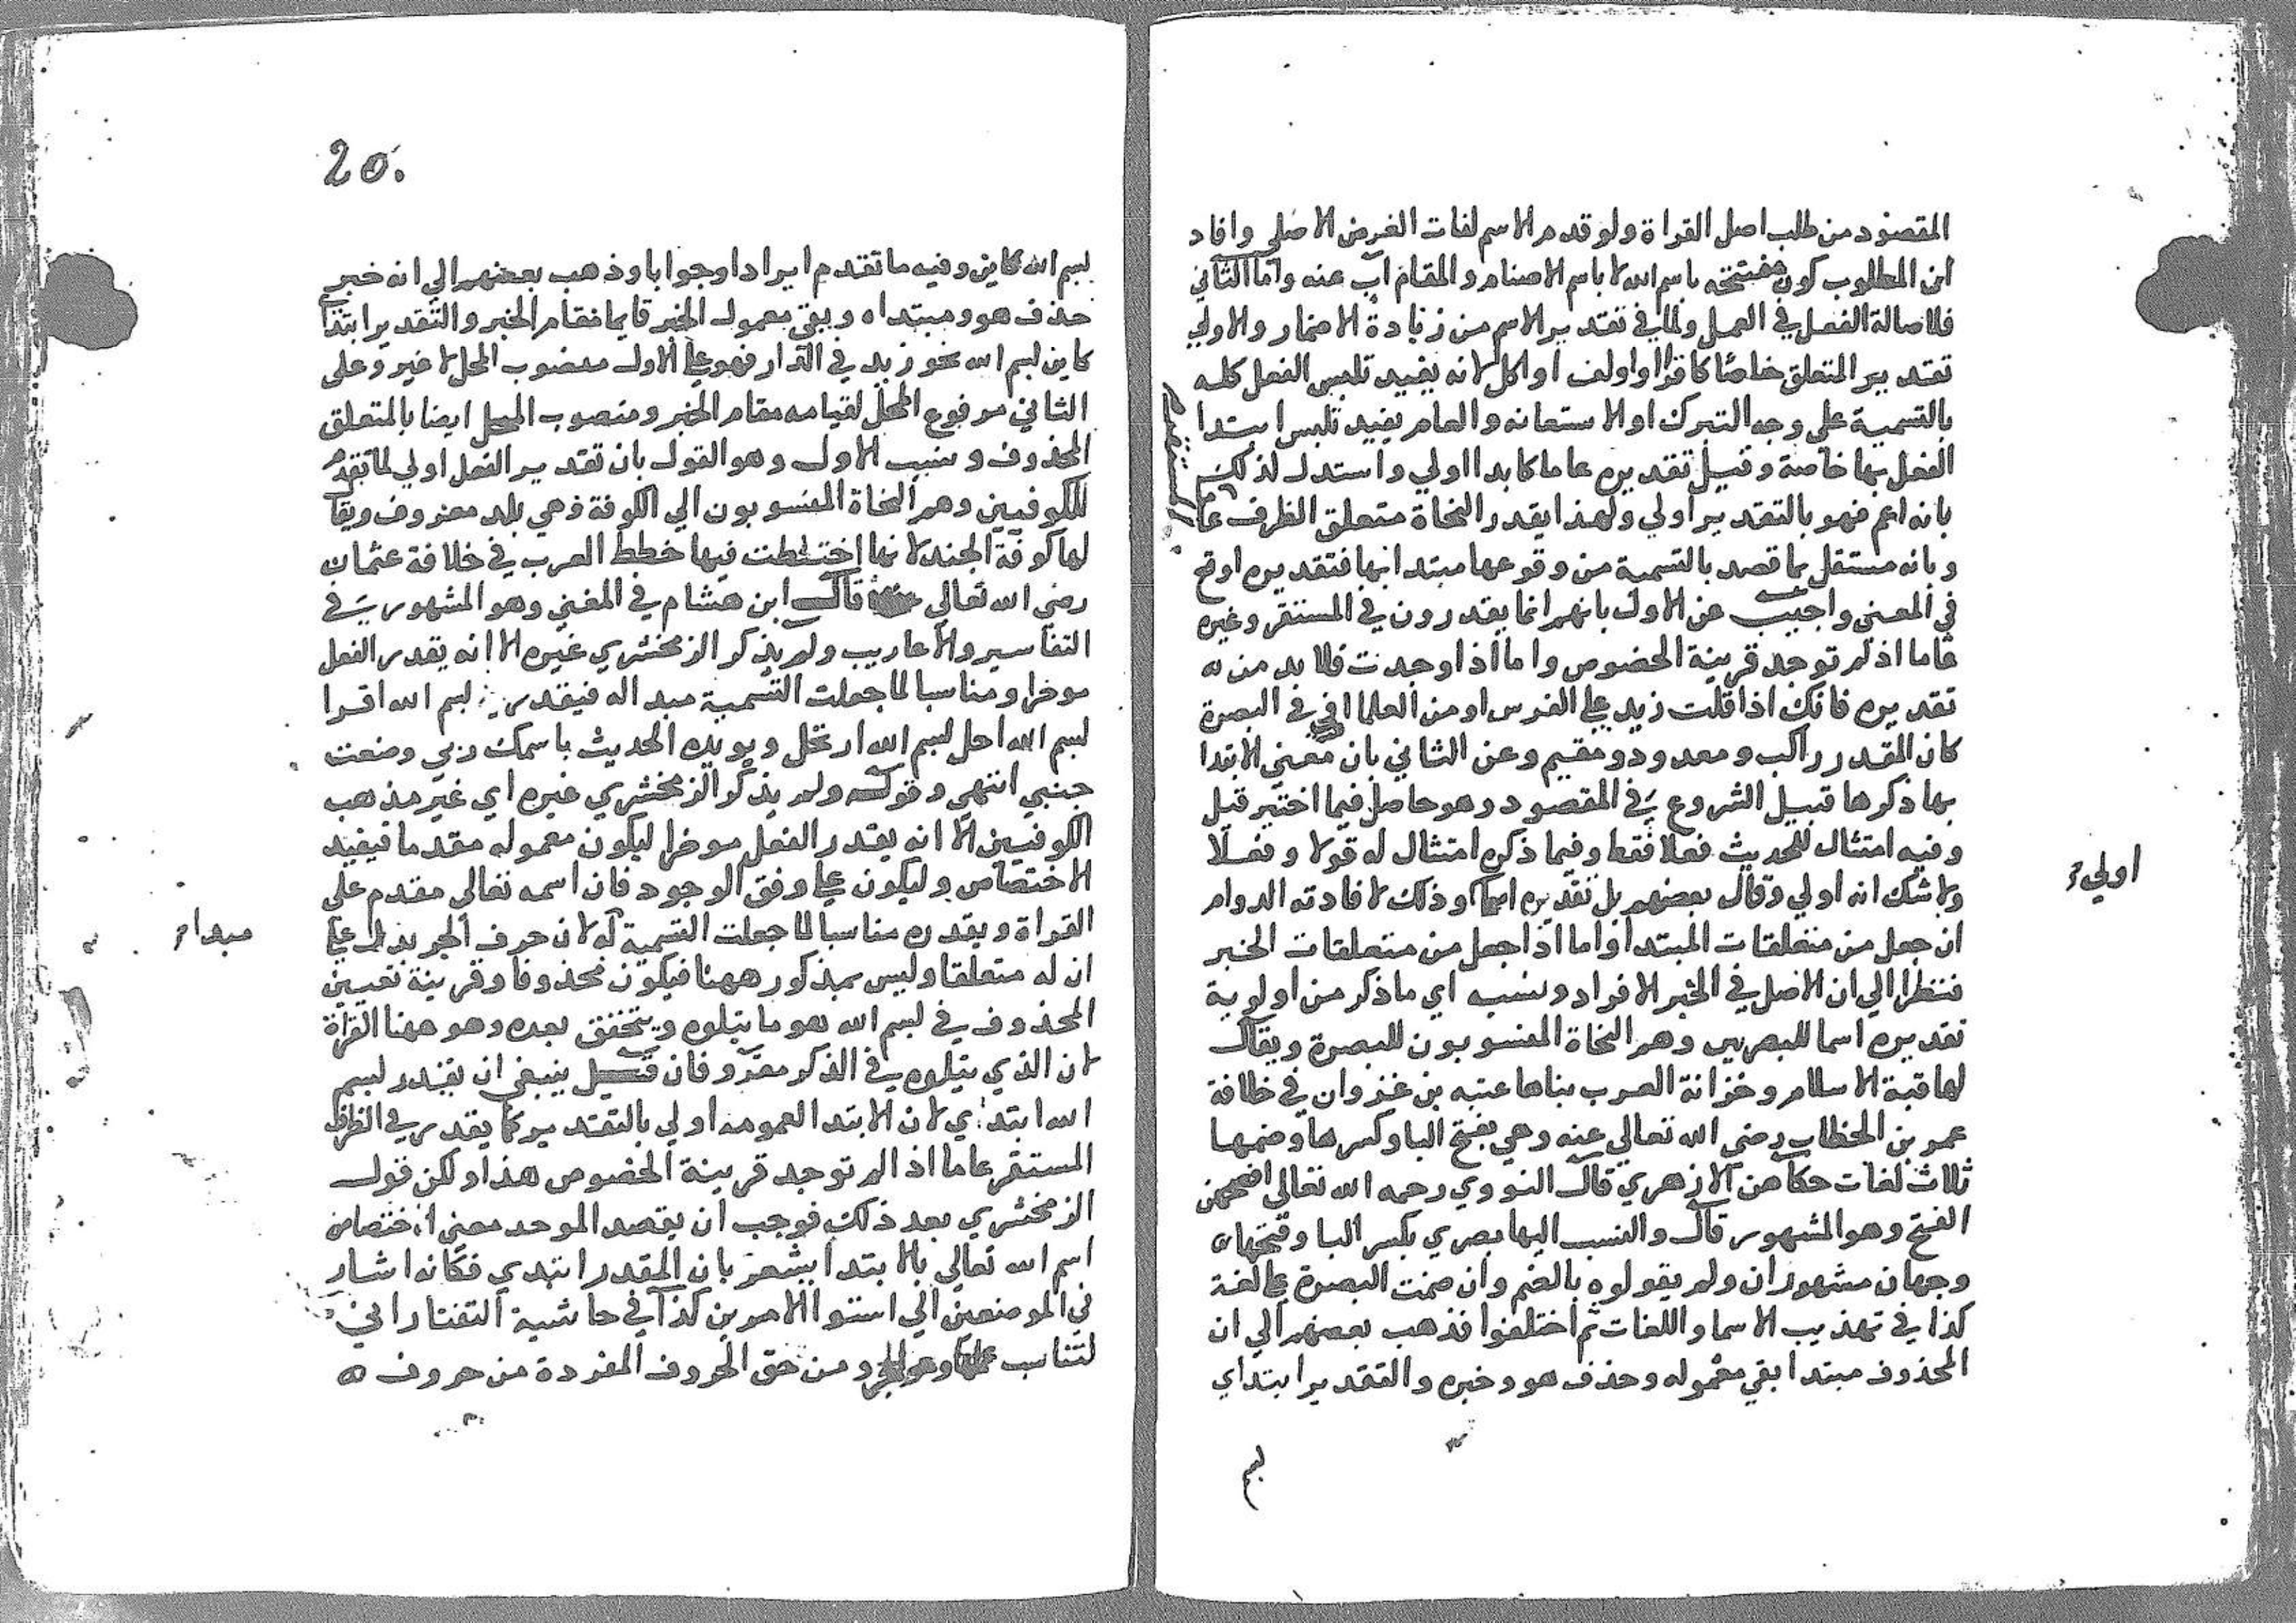 المقصود من طلب اصل القراة ولو قدم الاسم لفات الغرض الاصلي وافاد
ان المطلوب كون مفتتحه باسم الله لا باسم الاصنام والمقام آب عنه واما الثاني
فلاصالة الفعل في العمل ولما في تقدير الاسم من زيادة الاضمار والاولي
تقدير المتعلق خاصا كاقرا او اولف او اكل لانه يفيد تلبس الفعل كله
بالتسمية على وجه التبرك او الاستعانه والعام يفيد تلبس ابتدا
الفعل بها خاصة وقيل تقديره عاما كابدا اولي واستدل لذلك
بانه اعم فهو بالتقدير اولي ولهذا يقدر النحاة متعلق الظرف عاما
المستقر
وبانه مستقل بما قصد بالتسمية من وقوعها مبتدا بها فتقديره اوقع
في المعنى واجيب عن الاول بانهم انما يقدرون في المستقر وغيره
عاما اذا لم توجد قرينة الخصوص واما اذا وجدت فلا بد من
تقديره فانك اذا قلت زيد على الفرس او من العلما او في البصرة
كان المقدر راكب ومعدود ومقيم وعن الثاني بان معنى الابتدا
بها ذكرها قبيل الشروع في المقصود وهو حاصل فيما اختير قبل
وفيه امتثال للحديث فعلا فقط وفيما ذكره امتثال له قولا وفعلا
ولا شك انه اولي وقال بعضهم بل تقديره اسما وذلك لافادته الدوام
اولي
ان جعل من متعلقات المبتدا واما اذا جعل من متعلقات الخبر
فنظرا الي ان الاصل في الخبر الافراد ونسب اي ما ذكر من اولوية
تقديره اسما للبصريين وهم النحاة المنسوبون للبصرة ويقال
لها قبة الاسلام وخزانة العرب بناها عتبه بن غزوان في خلافة
عمر بن الخطاب رضى الله تعالى عنه وهي بفتح البا وكسرها وضمها
ثلاث لغات حكاهن الازهري قال النووي رحمه الله تعالى افصحهن
الفتح وهو المشهور قال والنسب اليها بصري بكسر البا وفتحها
وجهان مشهوران ولم يقولوه بالضم وان ضمت البصرة على لغة
كذا في تهذيب الاسما واللغات ثم اختلفوا فذهب بعضهم الي ان
المحذوف مبتدا بقي معموله وحذف هو وخبره والتقدير ابتداي
بسم
20
بسم الله كاين وفيه ما تقدم ايرادا وجوابا وذهب بعضهم الي انه خبر
حذف هو ومبتداه وبقي معمول الخبر قايما مقام الخبر والتقدير ابتدا
كاين بسم الله نحو زيد في الدار فهو على الاول منصوب المحل لا غير وعلى
الثاني مرفوع المحل لقيامه مقام الخبر ومنصوب المحل ايضا بالمتعلق
المحذوف ونسب الاول وهو القول بان تقدير الفعل اولي لما تقدم
للكوفيين وهم النحاة المنسوبون الي الكوفة وهي بلد معروف ويقا
لها كوفة الجند لانها اختطت فيها خطط العرب في خلافة عثمان
رضي الله تعالي عنه قال ابن هشام في المغني وهو المشهور في
التفاسير والاعاريب ولم يذكر الزمخشري غيره الا انه يقدر الفعل
موخرا ومناسبا لما جعلت التسمية مبدا له فيقدر بسم الله اقرا
بسم الله احل بسم الله ارتحل ويويده الحديث باسمك ربي وضعت
جنبي انتهي وقوله ولم يذكر الزمخشري غيره اي غير مذهب
الكوفيين الا انه يقدر الفعل موخرا ليكون معموله مقدما فيفيد
الاختصاص وليكون على وفق الوجود فان اسمه تعالى مقدم على
القراة ويقدره مناسبا لما جعلت التسمية له لان حرف الجر يدل على
مبدا
ان له متعلقا وليس بمذكور ههنا فيكون محذوفا وقرينة تعيين
المحذوف في بسم الله هو ما يتلوه ويتحقق بعده وهو ههنا القراة
لان الذي يتلوه في الذكر مقرو فان قيل ينبغي ان يقدر بسم
الله ابتدي لان الابتدا لعمومه اولي بالتقدير كما يقدر في الظرف
المستقر عاما اذا لم توجد قرينة الخصوص هذا ولكن قول
الزمخشري بعد ذلك فوجب ان يقصد الموحد معنى اختصاص
اسم الله تعالي بالابتدا يشعر بان المقدر ابتدي فكانه اشار
في الموضعين الي استوا الامرين كذا في حاشية التفتازاني
لتناسب عملها وهو الجر ومن حق الحروف المفردة من حروف